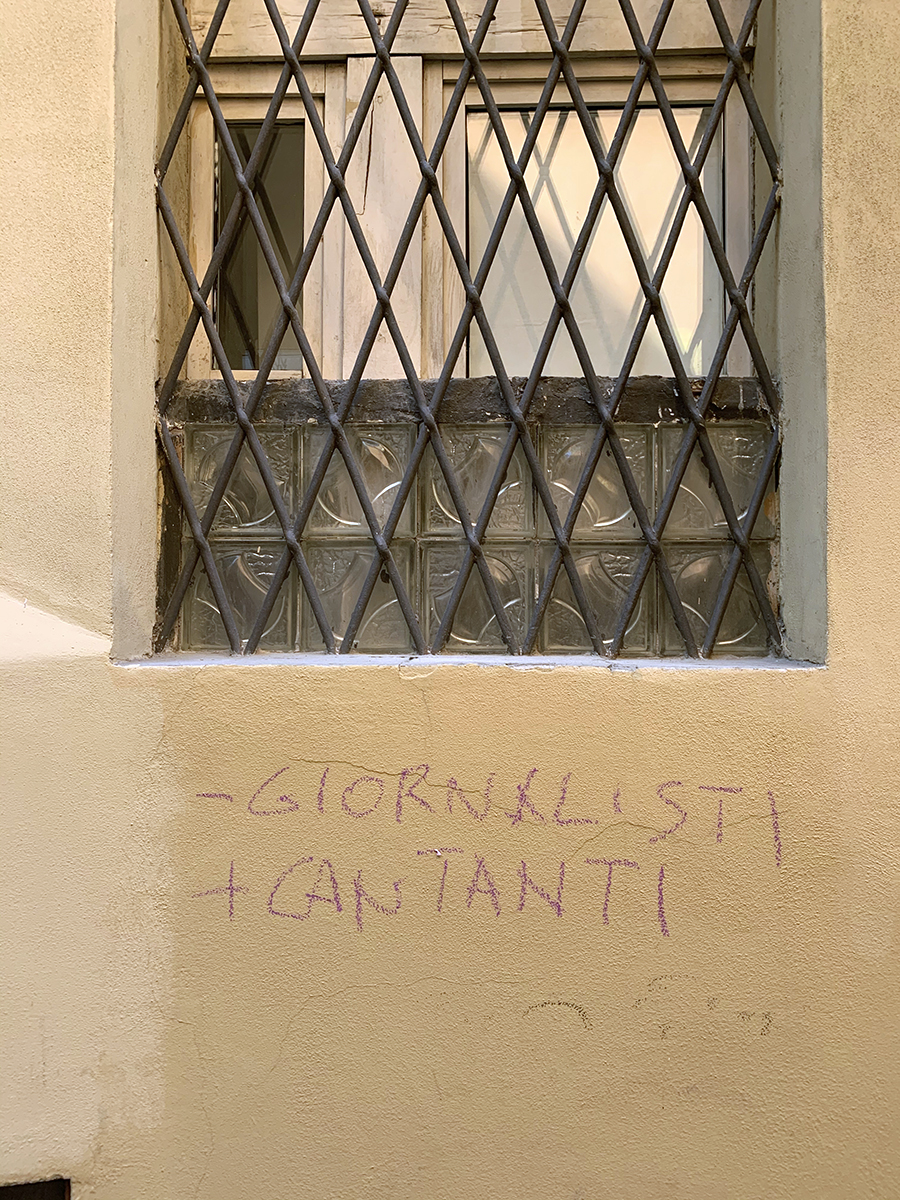 - GIORNALISTI
+ CANTANTI